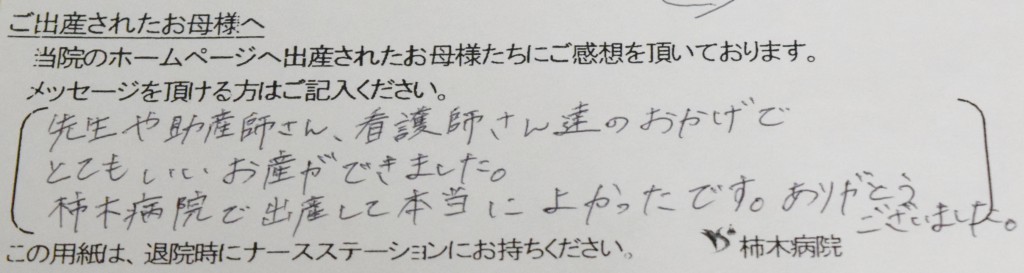 ご出産されたお母様へ
当院のホームページへ出産されたお母様たちにご感想を頂いております。
メッセージを頂ける方はご記入ください。
先生や助産師さん、看護師さん達のおかげで
とてもいいお産ができました。
柿木病院で出産して本当によかったです。ありがとう
ございました。
この用紙は、退院時にナースステーションにお持ちください。 柿木病院